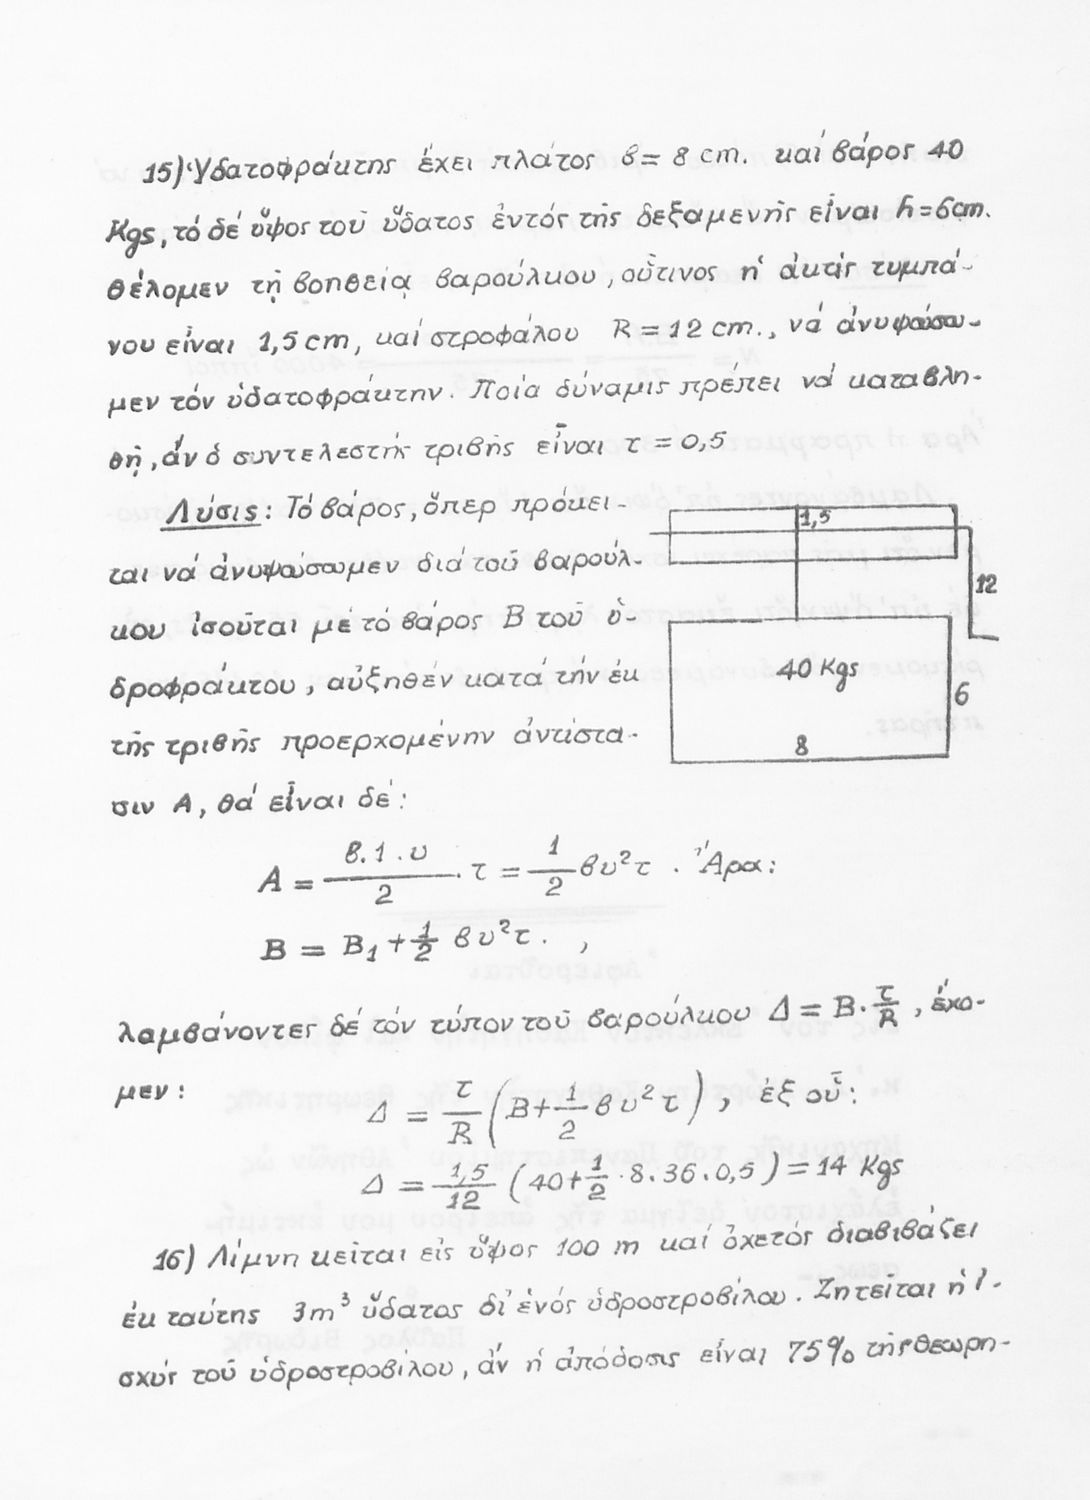 15) Ὑδατοφράκτης ἔχει πλάτος β = 8 cm. καί βάρος 40
Kgs, τό δέ ὕψος τοῦ ὕδατος ἐντός τῆς δεξαμενῆς εἶναι h = 6cm.
θέλομεν τῇ βοηθείᾳ βαρούλκου, οὗτινος ἡ ἀκτίς τυμπά-
νου εἶναι 1,5 cm, καί στροφάλου R = 12 cm., νά ἀνυψώσω-
μεν τόν ὑδατοφράκτην. Ποία δύναμις πρέπει νά καταβλη-
θῇ, ἄν ὁ συντελεστής τριβῆς εἶναι τ = 0,5
Λύσις: Τό βάρος, ὅπερ πρόκει-
ται νά ἀνυψώσωμεν διά τοῦ βαρούλ-
κου ἰσοῦται μέ τό βάρος Β τοῦ ὑ-
δροφράκτου, αὐξηθέν κατά τήν ἐκ
τῆς τριβῆς προερχομένην ἀντίστα-
σιν Α, θά εἶναι δέ:
1,5
12
40 Kgs
6
8
A = β.1.υ / 2 . τ = 1/2 βυ²τ . Ἄρα:
B = B₁ + 1/2 βυ²τ. ,
λαμβάνοντες δέ τόν τύπον τοῦ βαρούλκου Δ = Β. τ/R , ἔχο-
μεν:
Δ = τ/R (B + 1/2 βυ²τ) , ἐξ οὗ:
Δ = 1,5/12 (40 + 1/2 . 8. 36. 0,5) = 14 Kgs
16) Λίμνη κεῖται εἰς ὕψος 100 m καί ὀχετός διαβιβάζει
ἐκ ταύτης 3m³ ὕδατος δι' ἑνός ὑδροστροβίλου. Ζητεῖται ἡ ἰ-
σχύς τοῦ ὑδροστροβίλου, ἄν ἡ ἀπόδοσις εἶναι 75% τῆς θεωρη-